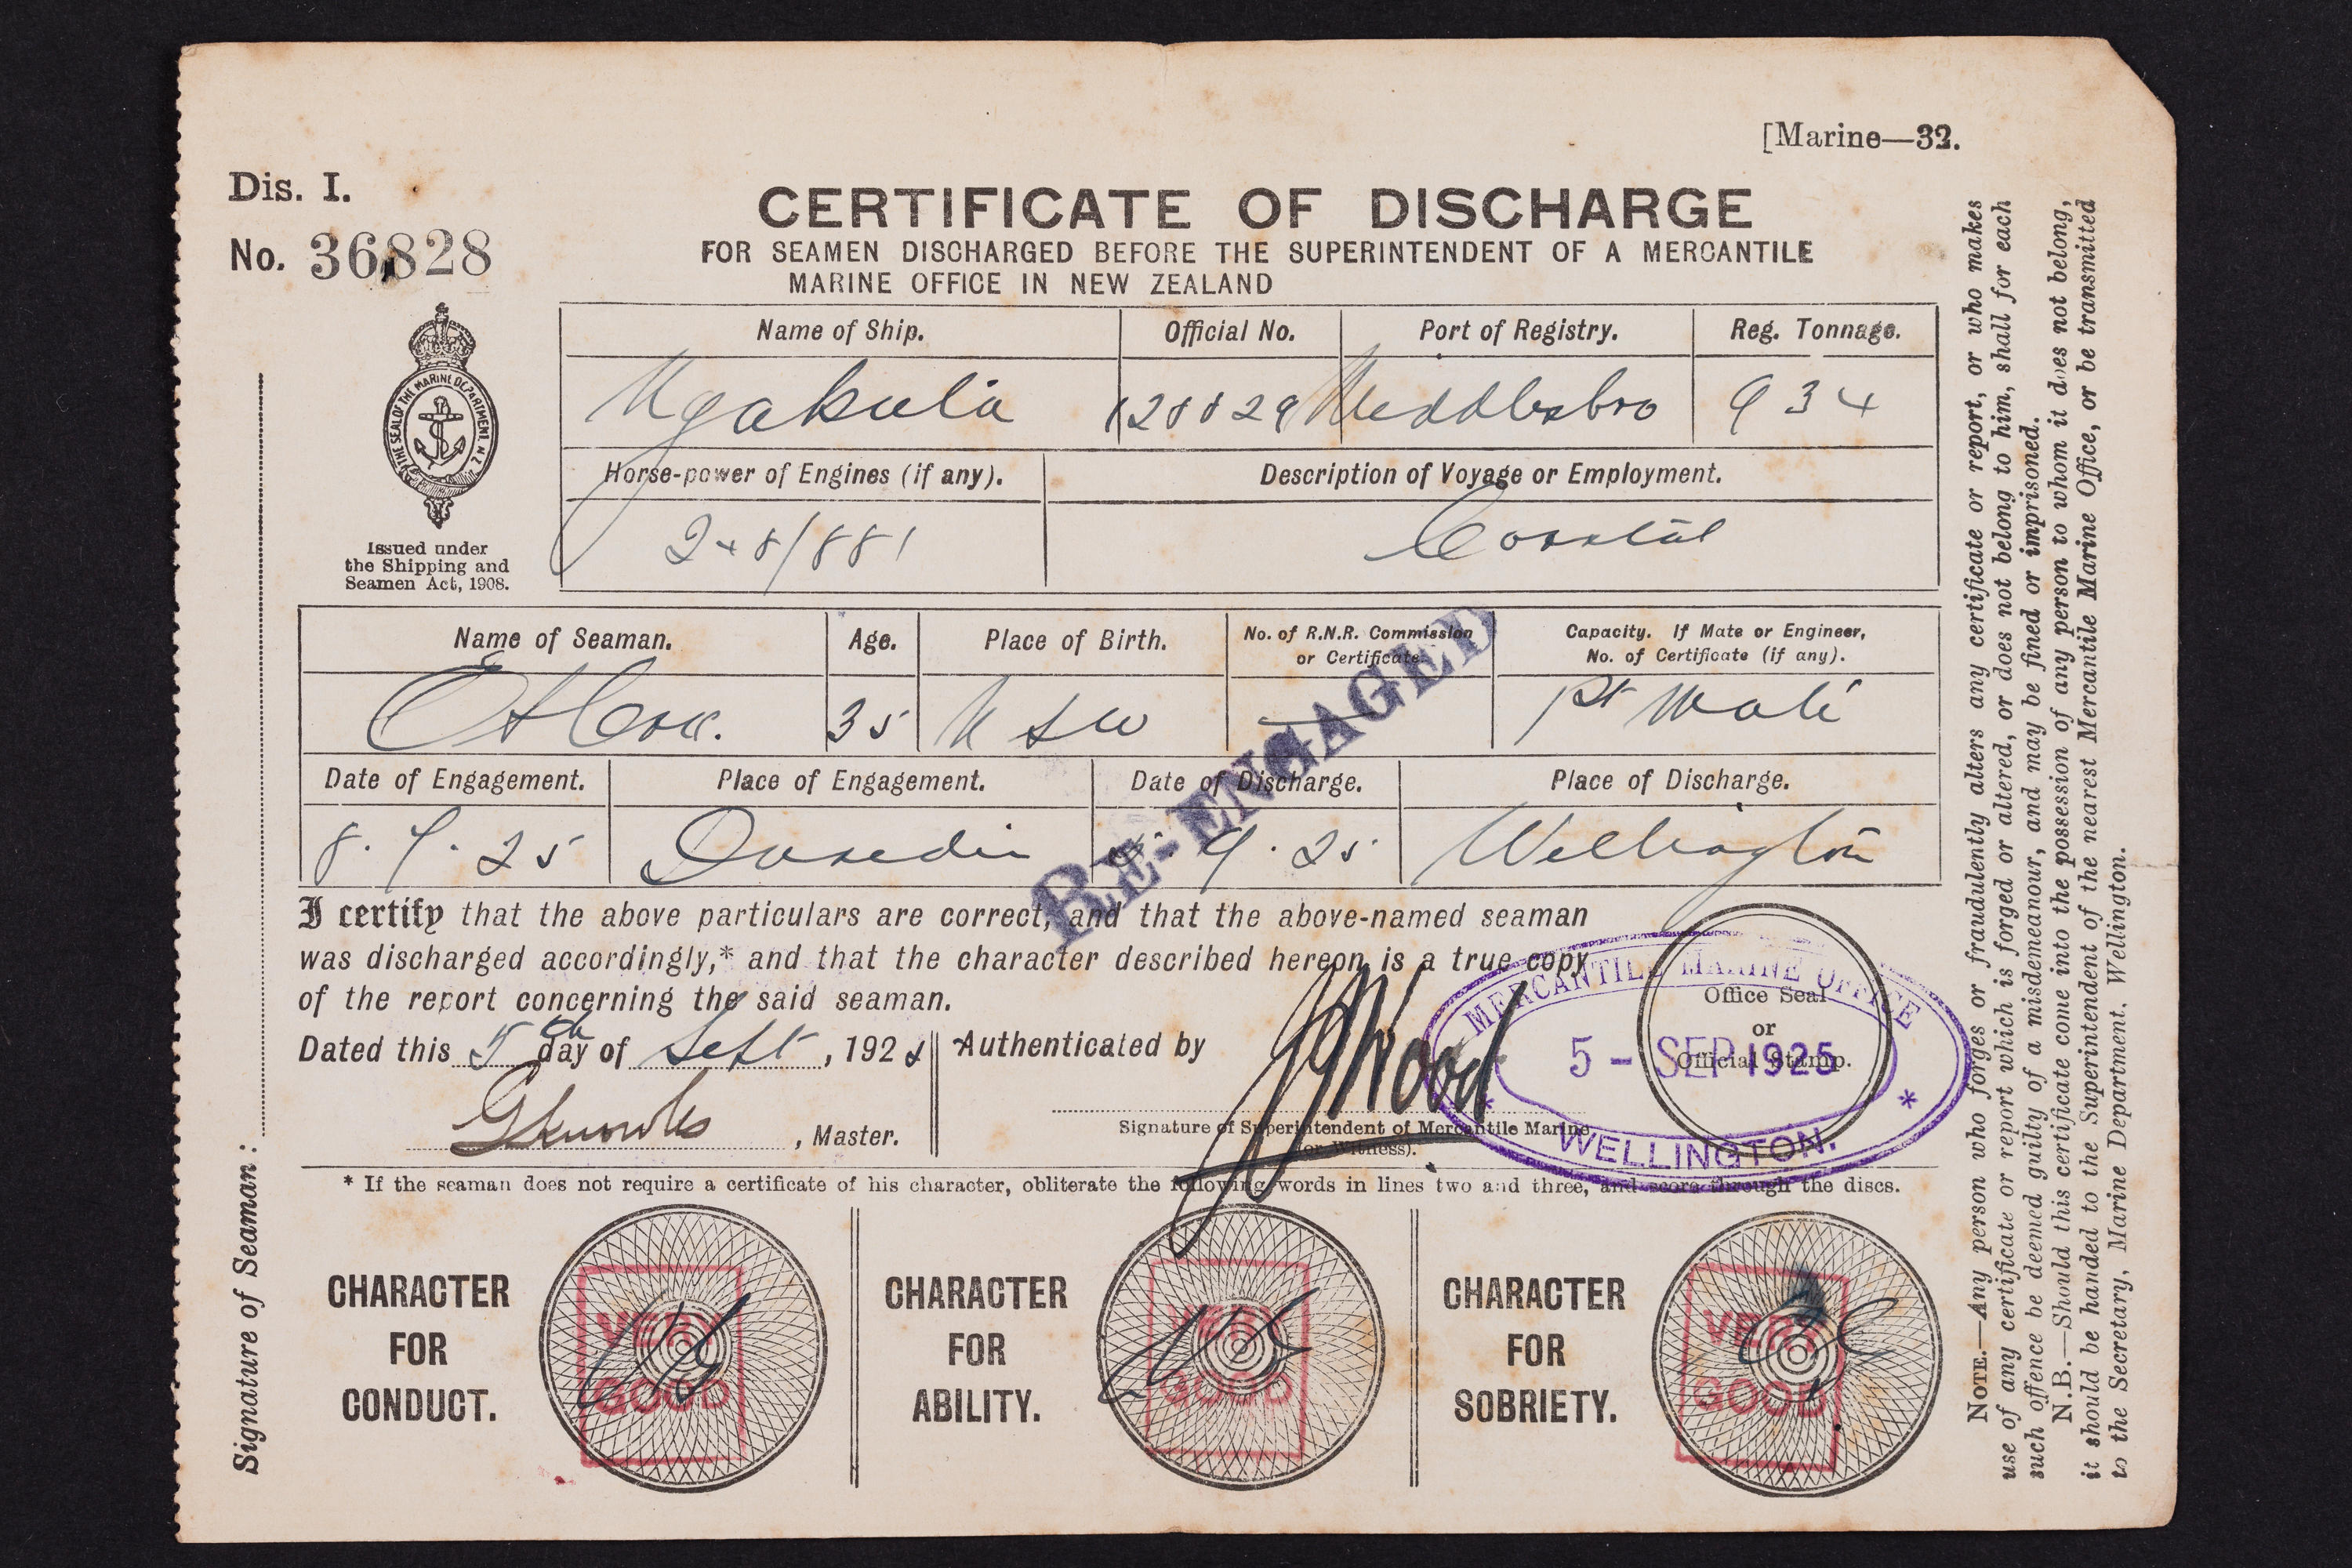 [Marine—32.
Dis. I.
No. 36828
CERTIFICATE OF DISCHARGE
FOR SEAMEN DISCHARGED BEFORE THE SUPERINTENDENT OF A MERCANTILE
MARINE OFFICE IN NEW ZEALAND
THE SEAL OF THE MARINE DEPARTMENT. N.Z.
Issued under
the Shipping and
Seamen Act, 1908.
Name of Ship. Official No. Port of Registry. Reg. Tonnage.
Ngakuta 128829 Middlesbro 934
Horse-power of Engines (if any). Description of Voyage or Employment.
248/881 Coastal
Name of Seaman. Age. Place of Birth. No. of R.N.R. Commission or Certificate. Capacity. If Mate or Engineer, No. of Certificate (if any).
Cox. 35 N S W — 1st Mate
RE-ENGAGED
Date of Engagement. Place of Engagement. Date of Discharge. Place of Discharge.
25 Dunedin 9. 25 Wellington
I certify that the above particulars are correct, and that the above-named seaman
was discharged accordingly,* and that the character described hereon is a true copy
of the report concerning the said seaman.
Dated this 5th day of Sept, 1925
Authenticated by
Wood
, Master.
Signature of Superintendent of Mercantile Marine
(or Witness).
Office Seal
or
Official Stamp.
MERCANTILE MARINE OFFICE
5 - SEP 1925
* WELLINGTON. *
* If the seaman does not require a certificate of his character, obliterate the following words in lines two and three, and score through the discs.
CHARACTER
FOR
CONDUCT.
VERY
GOOD
CHARACTER
FOR
ABILITY.
VERY
GOOD
CHARACTER
FOR
SOBRIETY.
VERY
GOOD
Signature of Seaman:
NOTE.—Any person who forges or fraudulently alters any certificate or report, or who makes
use of any certificate or report which is forged or altered, or does not belong to him, shall for each
such offence be deemed guilty of a misdemeanour, and may be fined or imprisoned.
N.B.—Should this certificate come into the possession of any person to whom it does not belong,
it should be handed to the Superintendent of the nearest Mercantile Marine Office, or be transmitted
to the Secretary, Marine Department, Wellington.